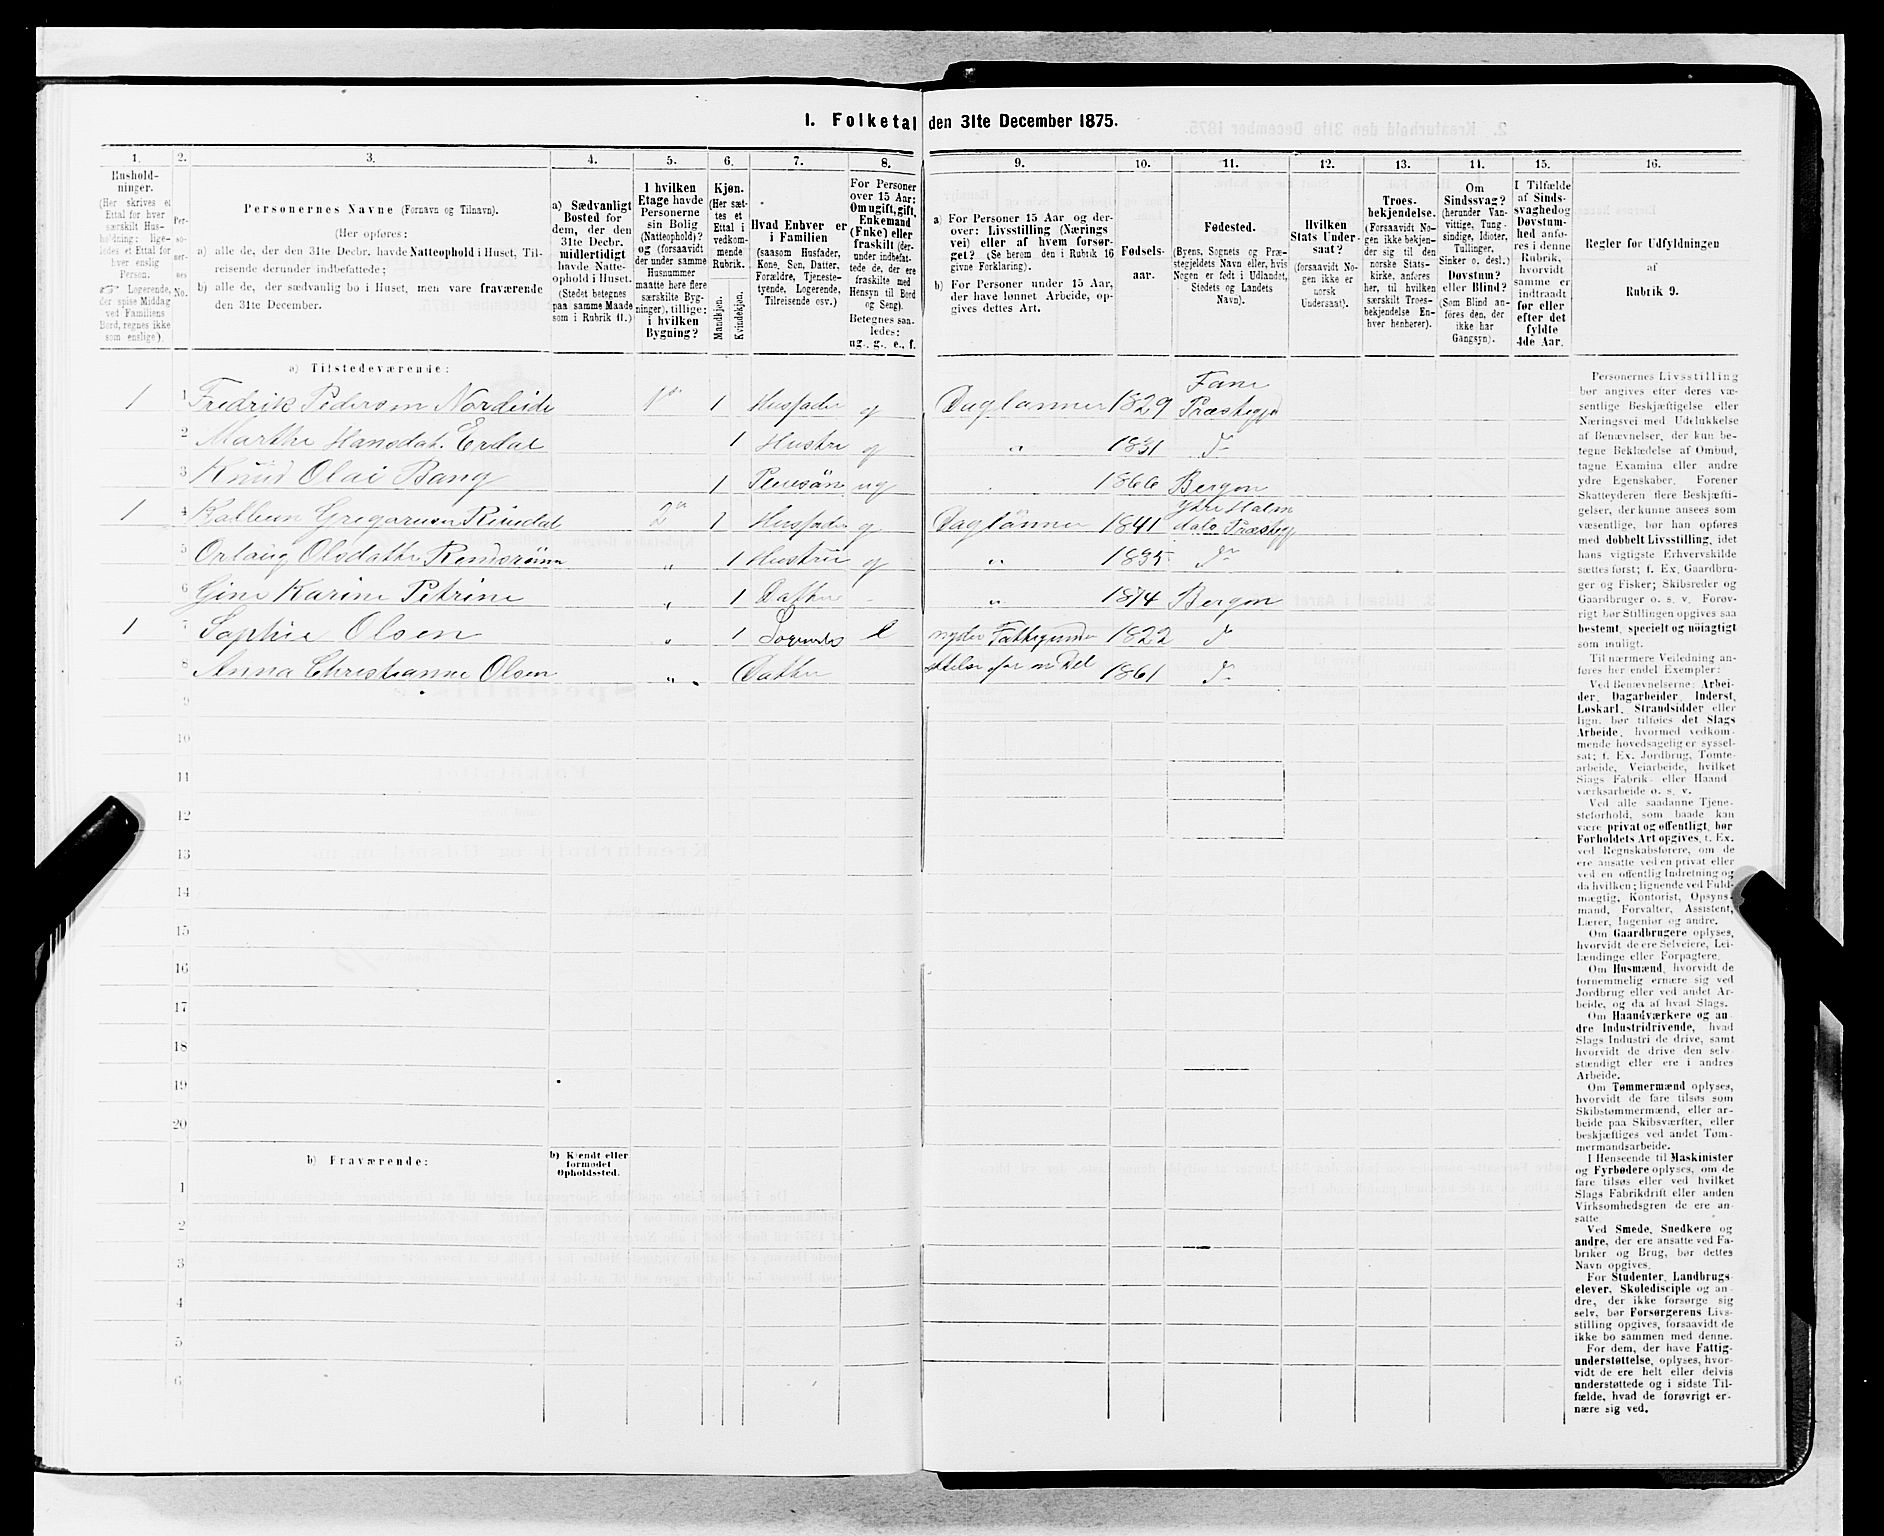 1. Folketal den 31te December 1875.
1. 2. 3. 4. 5. 6. 7. 8. 9. 10. 11. 12. 13. 14. 15. 16.
Hushold-
ninger.
(Her skrives et
Ettal for hver
særskilt Hus-
holdning; lige-
ledes et Ettal for
hver enslig
Person.
Logerende,
der spise Middag
ved Familiens
Bord, regnes ikke
som enslige).
Per-
so-
ner-
nes
No.
Personernes Navne (Fornavn og Tilnavn).
(Her opføres:
a) alle de, der den 31te Decbr. havde Natteophold i Huset, Til-
reisende derunder indbefattede;
b) alle de, der sædvanlig bo i Huset, men vare fraværende
den 31te December.
a) Sædvanligt
Bosted for
dem, der den
31te Decbr.
midlertidigt
havde Natte-
ophold i Huset.
(Stedet betegnes
paa samme Maade
som i Rubrik 11.)
I hvilken
Etage havde
Personerne
sin Bolig
(Natteophold)?
og (forsaavidt
der under samme
Husnummer
maatte høre flere
særskilte Byg-
ninger), tillige:
i hvilken
Bygning?
Kjøn.
(Her sæt-
tes et
Ettal i
vedkom-
mende
Rubrik.
Mandkjøn.
Kvindekjøn.
Hvad Enhver er
i Familien
(saasom Husfader,
Kone, Søn, Datter,
Forældre, Tjeneste-
tyende, Logerende,
Tilreisende osv.)
For Personer
over 15 Aar:
Om ugift, gift,
Enkemand
(Enke) eller
fraskilt (der-
under indbefat-
tede de, der ere
fraskilte med
Hensyn til Bord
og Seng).
Betegnes saa-
ledes:
ug., g., e., f.
a) For Personer 15 Aar og der-
over: Livsstilling (Nærings
vei) eller af hvem forsør-
get? (Se herom den i Rubrik 16
givne Forklaring).
b) For Personer under 15 Aar,
der have lønnet Arbeide, op-
gives dettes Art.
Fødsels-
aar.
Fødested.
(Byens, Sognets og Præ-
stegjeldets Navn eller, hvis
Nogen er født i Udlandet,
Stedets og Landets
Navn).
Hvilken
Stats Under-
saat?
(forsaavidt No-
gen ikke er
norsk
Undersaat).
Troes-
bekjendelse.
(Forsaavidt No-
gen ikke bekjen-
der sig til den
norske Stats-
kirke, anføres
her, til hvilken
særskilt Troes-
bekjendelse En-
hver henhører).
Om
Sindssvag?
(herunder Van-
vittige, Tung-
sindige, Idioter,
Tullinger,
Sinker o. desl.)
Døvstum?
eller Blind?
(Som Blind an-
føres den, der
ikke har
Gangsyn).
I Tilfælde
af Sinds-
svaghed og
Døvstum-
hed anfø-
res i denne
Rubrik,
hvorvidt
samme er
indtraadt
før eller
efter det
fyldte
4de Aar.
Regler for Udfyldningen
af
Rubrik 9.
a) Tilstedeværende:
1 1 Fredrik Pedersen Nordeide 1ste 1 Husfader g Daglønner 1829 Fane Præstegjd
2 Marthe Hansdat. Erdal 1 Hustru g " 1831 do
3 Knud Olai Bang 1 Pleiesøn ug " 1866 Bergen
1 4 Gregorusen 2den 1 Husfader g Daglønner 1841 Ydre Holm
dals Præstegj
5 Olsdatter " 1 Hustru g " 1835 do
6 Gine Karine Petrine " 1 Datter - " 1874 Bergen
1 7 Sophie Olsen " 1 e nyder Fattigunder 1822 do
8 Anna Christianne Olsen " Datter støttelse for en Del 1861 do
9
10
11
12
13
14
15
16
17
18
19
20
b) Fraværende:
b) Kjendt eller
formodet
Opholdssted.
1
2
3
4
5
6
Personernes Livsstilling
bør angives efter deres væ-
sentlige Beskjæftigelse eller
Næringsvei med Udelukkelse
af Benævnelser, der kun be-
tegne Beklædelse af Ombud,
tagne Examina eller andre
ydre Egenskaber. Forener
Skatteyderen flere Beskjæfti-
gelser, der kunne ansees som
væsentlige, bør han opføres
med dobbelt Livsstilling, idet
hans vigtigste Erhvervskilde
sættes først; f. Ex. Gaardbru-
ger og Fisker; Skibsreder og
Gaardbruger o. s. v. Forøv-
rigt bør Stillingen opgives saa
bestemt, specielt og nøiagtigt
som muligt.
Til nærmere Veiledning an-
føres her endel Exempler:
Ved Benævnelserne: Arbei-
der, Dagarbeider, Inderst,
Løskarl, Strandsidder eller
lign. bør tilføies det Slags
Arbeide, hvormed vedkom-
mende hovedsagelig er syssel-
sat; f. Ex. Jordbrug, Tomte-
arbeide, Veiarbeide, hvilket
Slags Fabrik- eller Haand-
værksarbeide o. s. v.
Ved alle saadanne Tjene-
steforhold, som baade kan
være privat og offentligt, bør
Forholdets Art opgives, f. Ex.
ved Regnskabsførere, om de
ere ansatte ved en privat eller
ved en offentlig Indretning og
da hvilken; lignende ved Fuld-
mægtig, Kontorist, Opsyns-
mand, Forvalter, Assistent,
Lærer, Ingeniør og andre.
Om Gaardbrugere oplyses,
hvorvidt de ere Selveiere, Lei-
lændinge eller Forpagtere.
Om Husmænd, hvorvidt de
fornemmelig ernære sig ved
Jordbrug eller ved andet Ar-
beide, og da af hvad Slags.
Om Haandværkere og an-
dre Industridrivende, hvad
Slags Industri de drive, samt
hvorvidt de drive den selv-
stændigt eller ere i andres
Arbeide.
Om Tømmermænd oplyses,
hvorvidt de fare tilsøs som
Skibstømmermænd, eller ar-
beide paa Skibsværfter, eller
beskjæftiges ved andet Tøm-
mermandsarbeide.
I Henseende til Maskinister
og Fyrbødere oplyses, om de
fare tilsøs eller ved hvilket
Slags Fabrikdrift eller anden
Virksomhedsgren de ere an-
satte.
Ved Smede, Snedkere og
andre, der ere ansatte ved Fa-
briker og Brug, bør dettes
Navn opgives.
For Studenter, Landbrugs-
elever, Skoledisciple og an-
dre, der ikke forsørge sig
selv, bør Forsørgerens Livs-
stilling opgives, forsaavidt de
ikke bo sammen med denne.
For dem, der have Fattig-
understøttelse, oplyses, hvor-
vidt de ere helt eller delvis
understøttede og i sidste Til-
fælde, hvad de forøvrigt er-
nære sig ved.